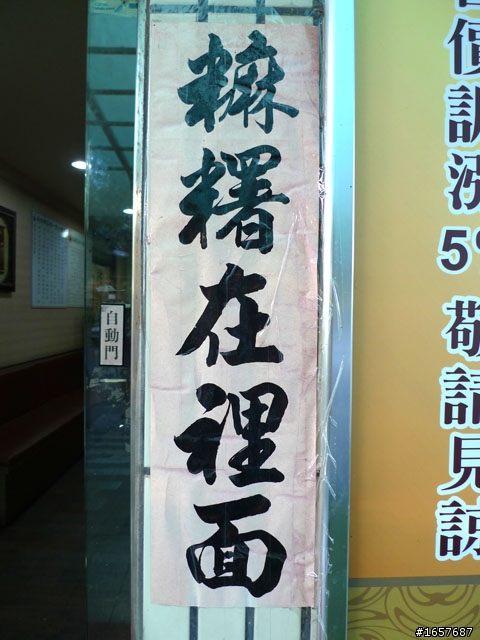 糠糬在裡面
自動門
價調漲5%
敬請見諒
#1657687